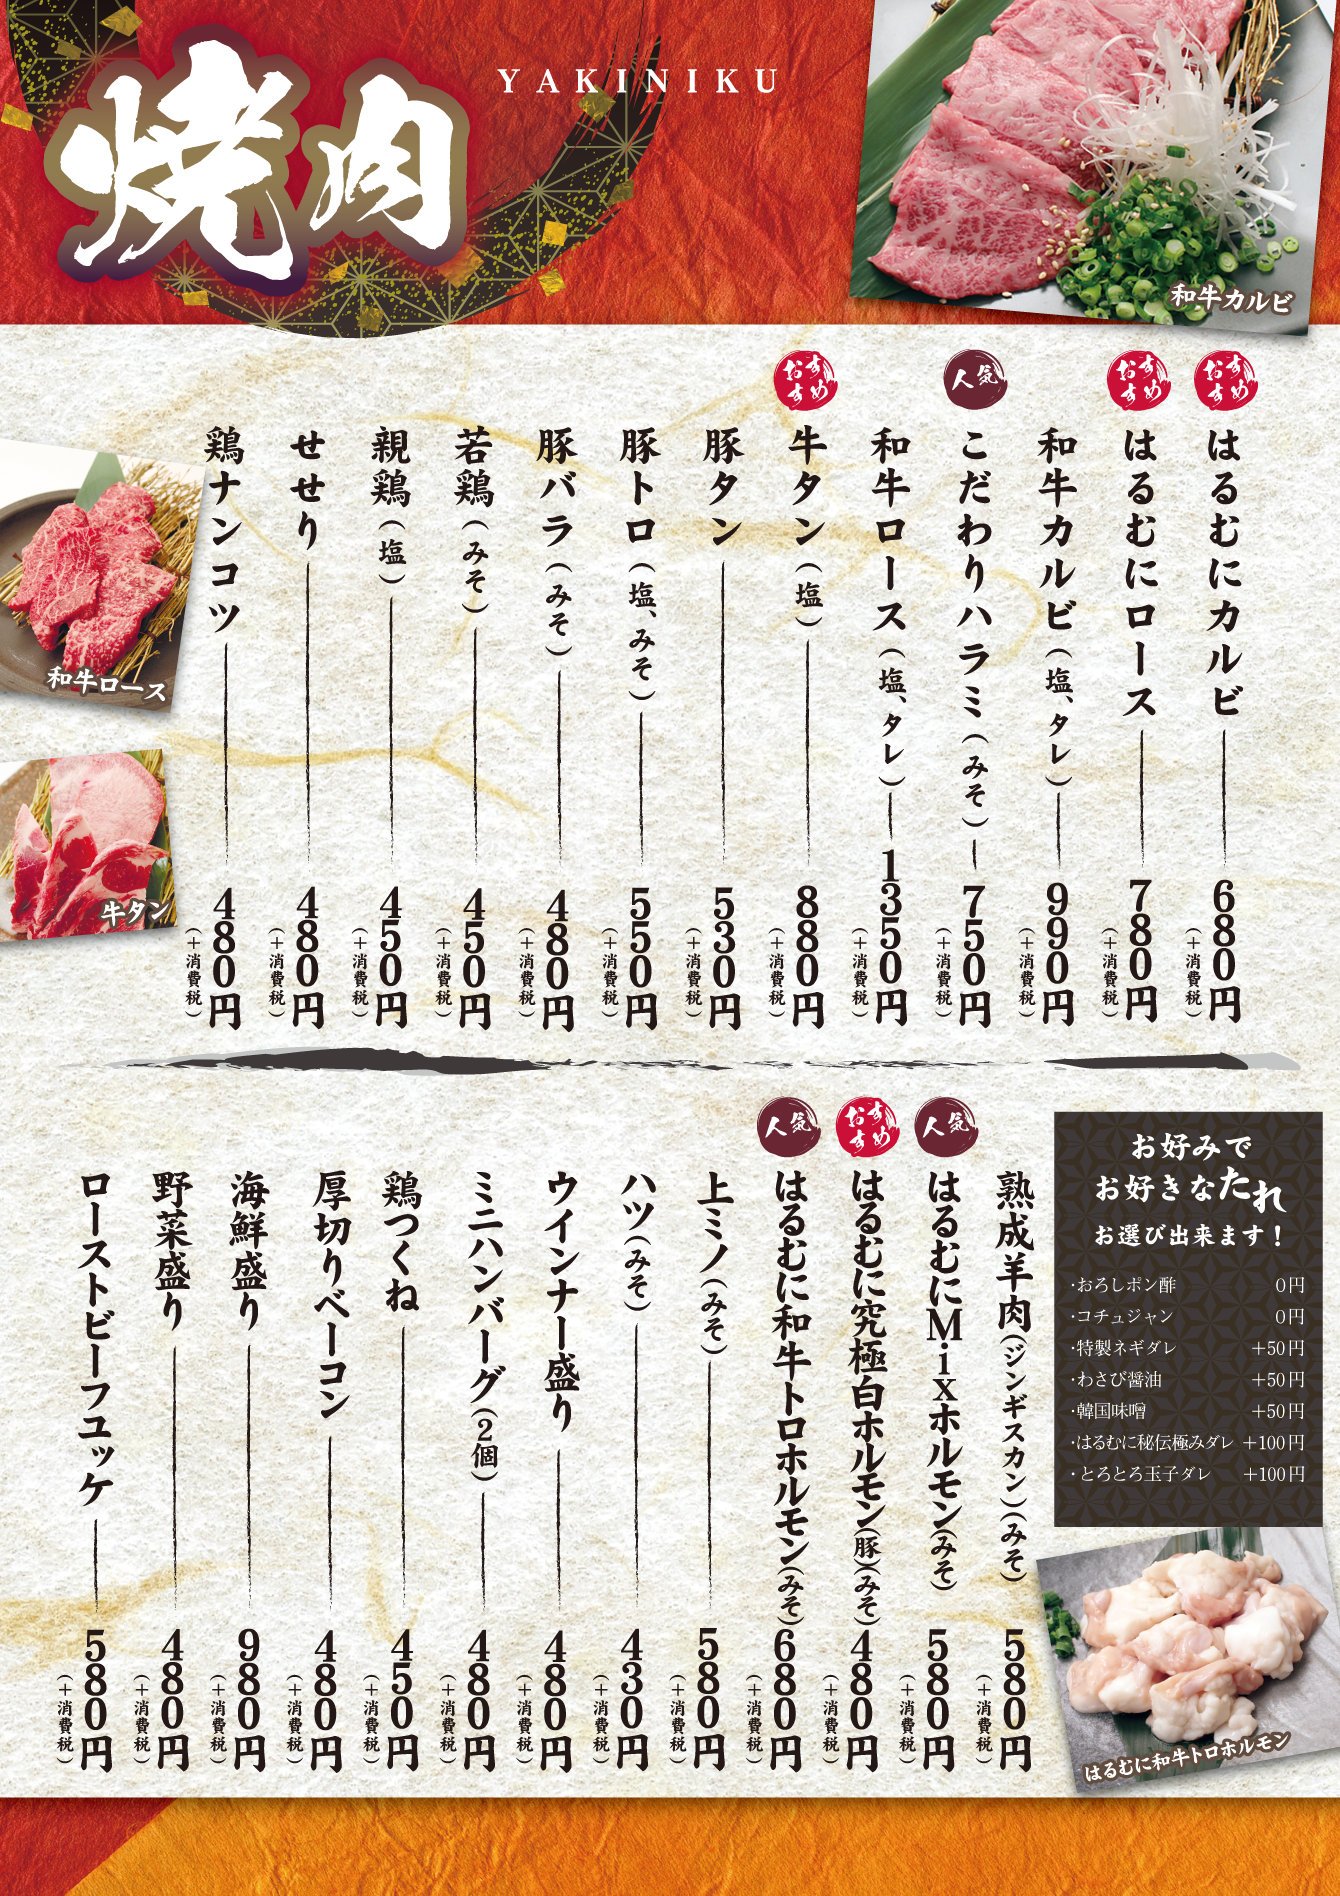 焼肉
YAKINIKU
和牛カルビ
おすすめ
はるむにカルビ
680円
(+消費税)
おすすめ
はるむにロース
780円
(+消費税)
和牛カルビ(塩、タレ)
990円
(+消費税)
人気
こだわりハラミ(みそ)
750円
(+消費税)
和牛ロース(塩、タレ)
1350円
(+消費税)
おすすめ
牛タン(塩)
880円
(+消費税)
豚タン
530円
(+消費税)
豚トロ(塩、みそ)
550円
(+消費税)
豚バラ(みそ)
480円
(+消費税)
若鶏(みそ)
450円
(+消費税)
親鶏(塩)
450円
(+消費税)
せせり
480円
(+消費税)
鶏ナンコツ
480円
(+消費税)
和牛ロース
牛タン
お好みで
お好きなたれ
お選び出来ます!
・おろしポン酢 0円
・コチュジャン 0円
・特製ネギダレ +50円
・わさび醤油 +50円
・韓国味噌 +50円
・はるむに秘伝極みダレ +100円
・とろとろ玉子ダレ +100円
はるむに和牛トロホルモン
熟成羊肉(ジンギスカン)(みそ)
580円
(+消費税)
人気
はるむにMixホルモン(みそ)
580円
(+消費税)
おすすめ
はるむに究極白ホルモン(豚)(みそ)
480円
(+消費税)
人気
はるむに和牛トロホルモン(みそ)
680円
(+消費税)
上ミノ(みそ)
580円
(+消費税)
ハツ(みそ)
430円
(+消費税)
ウインナー盛り
480円
(+消費税)
ミニハンバーグ(2個)
480円
(+消費税)
鶏つくね
450円
(+消費税)
厚切りベーコン
480円
(+消費税)
海鮮盛り
980円
(+消費税)
野菜盛り
480円
(+消費税)
ローストビーフユッケ
580円
(+消費税)